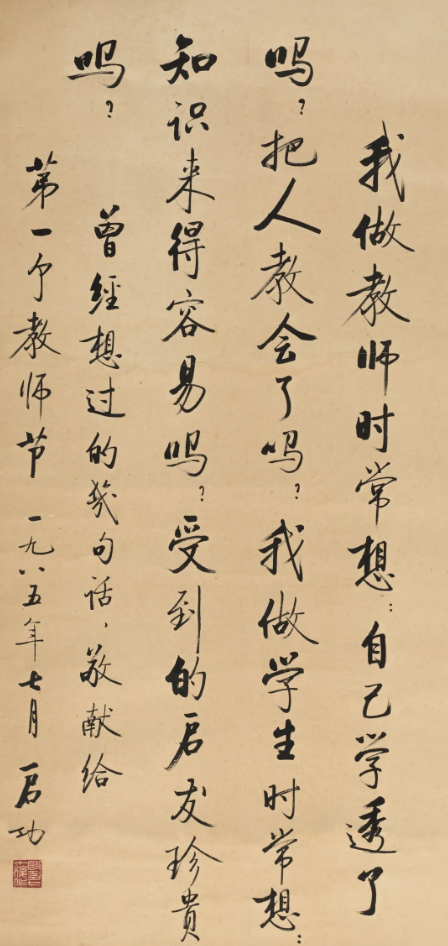 我做教师时常想：自己学透了
吗？把人教会了吗？我做学生时常想：
知识来得容易吗？受到的启发珍贵
吗？
曾經想过的几句话，敬献给
第一个教师节 一九八五年七月 启功